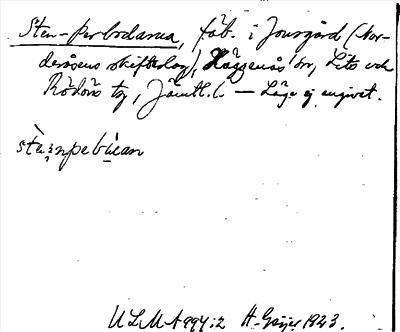 Sten-perbodarna, fäb. i Jonsgård (Nor-
deråsens skifteslag), Häggenås sn, Lits och
Rödöns tg, Jämtl. l. — Läge ej angivet.
ULMA 994:2 H. Geijer 1923.